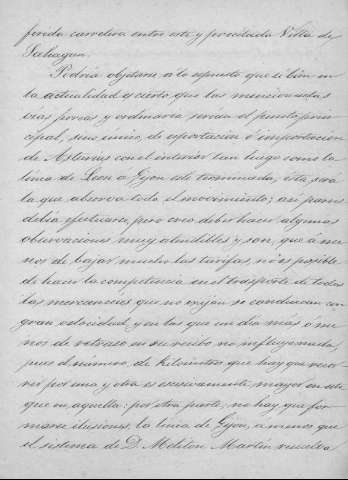 ferida carretera entre este y precitada Villa de
Sahagun.
Podria objetarse á lo expuesto que si bien en
la actualidad es cierto que las mencionadas
vias ferreas y ordinaria serian el punto prin-
cipal, sino único, de esportacion é importacion
de Asturias con el interior tan luego como la
linea de Leon á Gijon esté terminada, ésta será
la que absorva todo el movimiento; asi parece
debia efectuarse, pero creo deber hacer algunas
observaciones muy atendibles y son, que á me-
nos de bajar mucho las tarifas, no es posible
de hacer la competencia en el transporte de todas
las mercancias que no exijan se conduzcan con
gran velocidad, y en las que un dia más ó me-
nos de retraso en su recibo no influya nada,
pues el número de kilómetros que hay que recor-
rer por una y otra es escesivamente mayor en esta
que en aquella: por otra parte, no hay que for-
marse ilusiones, la linea de Gijon, a menos que
el sistema de D. Meliton Martin resuelva